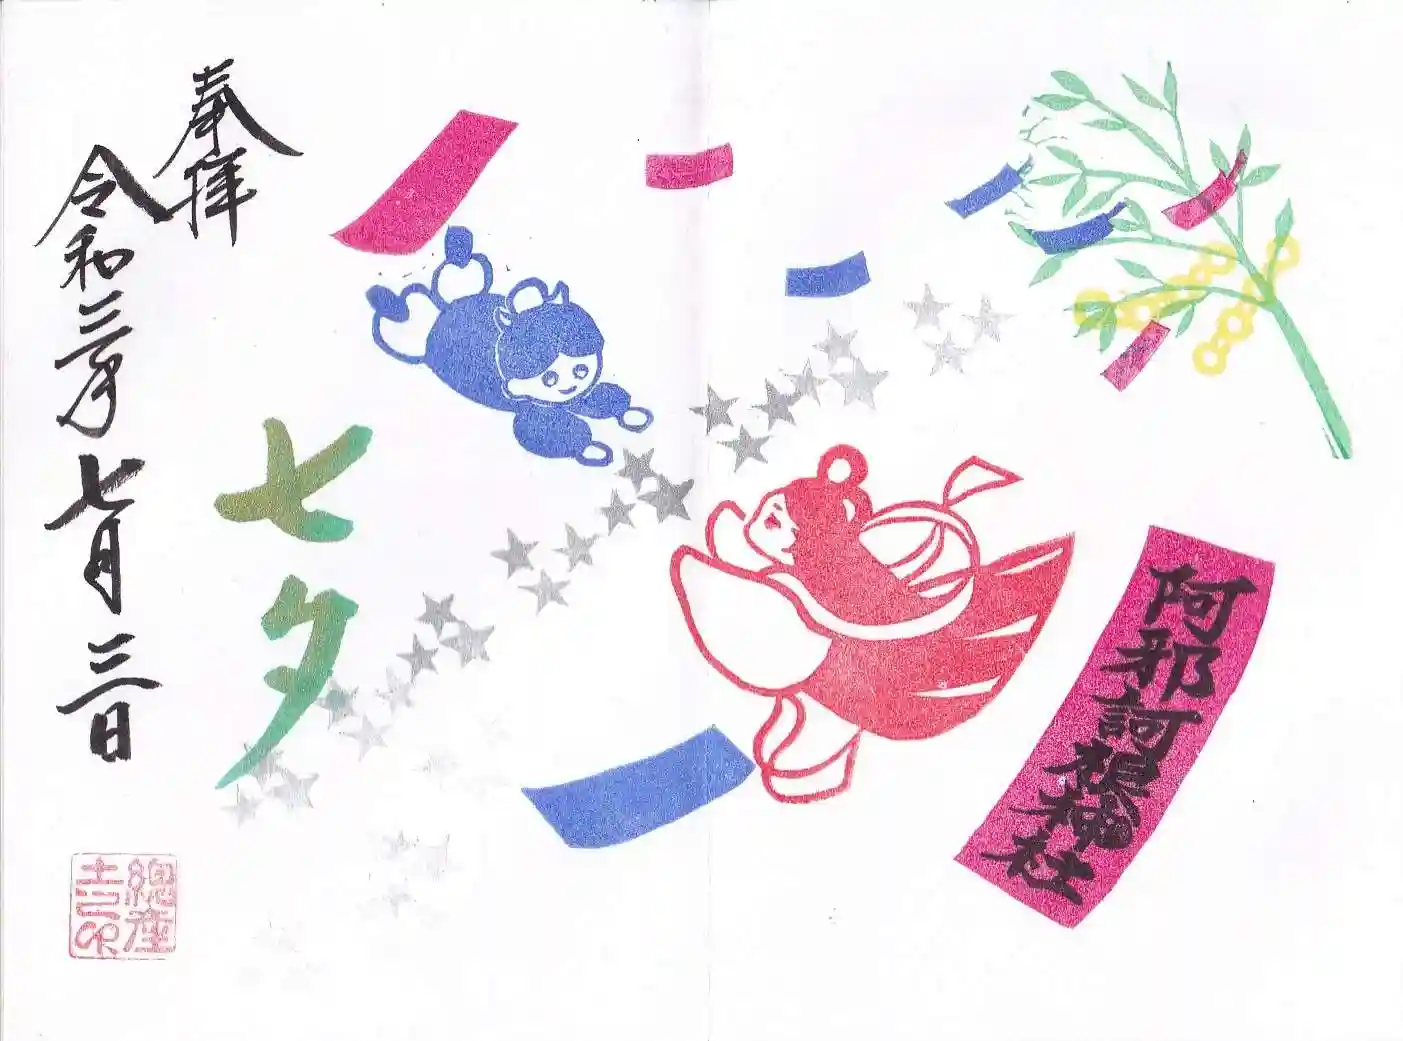 阿邪訶根神社
七夕
奉拝
令和三年七月三日